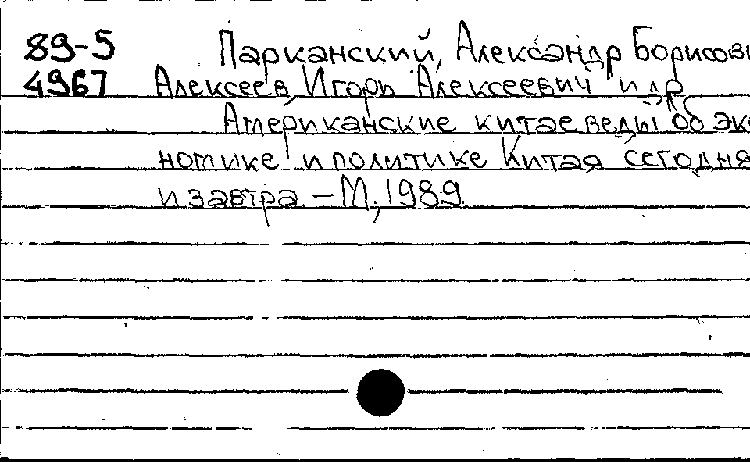 89-5 Парканский, Александр Борисови
4967 Алексеев, Игорь Алексеевич и др
Американские китаеведы об эко
номике и политике Китая сегодня
и завтра. – М., 1989.